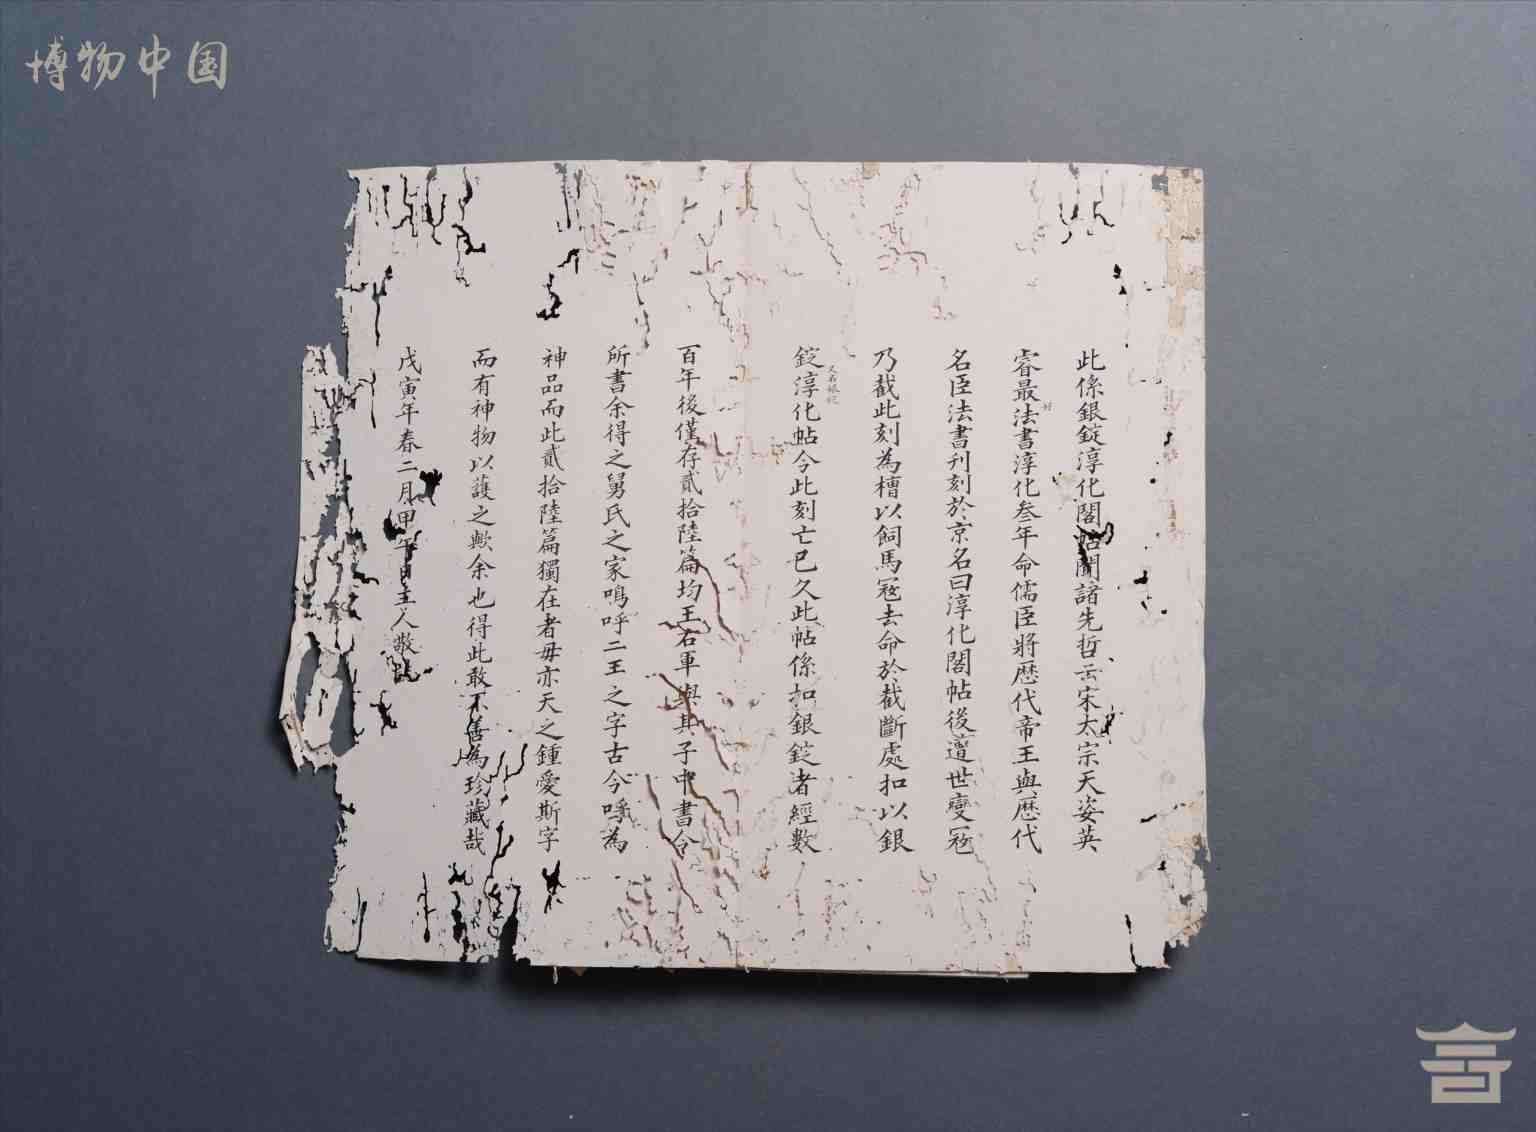 博物中国
此係銀錠淳化閣帖聞諸先哲云宋太宗天姿英
睿最法書淳化叁年命儒臣將歷代帝王與歷代
好
名臣法書刊刻於京名曰淳化閣帖後遭世變冦
乃截此刻為槽以飼馬冦去命於截斷處扣以銀
錠淳化帖今此刻亡已久此帖係扣銀錠者經數
又名銀錠
百年後僅存貳拾陸篇均王右軍與其子中書令
所書余得之舅氏之家鳴呼二王之字古今呼為
神品而此貳拾陸篇獨在者毋亦天之鍾愛斯字
而有神物以護之歟余也得此敢不善為珍藏哉
戊寅年春二月甲午日主人敬誌